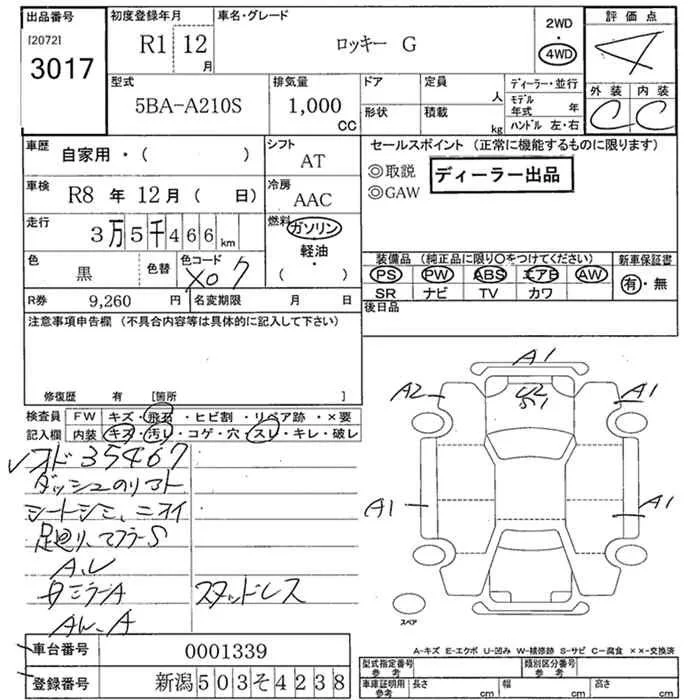 出品番号
[2072]
3017
初度登録年月
R1 12月
車名・グレード
ロッキー G
2WD
・
4WD
評価点
4
外装 内装
C C
型式
5BA-A210S
排気量
1,000 CC
ドア
形状
定員 人
積載 kg
ディーラー・並行
モデル年式 年
ハンドル 左・右
車歴
自家用・( )
車検
R8 年 12月 ( 日)
走行
3万5千466km
色
黒
色替
色コード
X07
R券 9,260 円
名変期限 月 日
シフト
AT
冷房
AAC
燃料
ガソリン
軽油・
( )
セールスポイント (正常に機能するものに限ります)
◎取説
◎GAW
ディーラー出品
装備品 (純正品に限り○をつけてください)
新車保証書
PS PW ABS エアB AW
SR ナビ TV カワ
有・無
後日品
注意事項申告欄 (不具合内容等は具体的に記入して下さい)
修復歴 有 [箇所 ]
検査員 FW キズ・飛石・ヒビ割・リペア跡・×要
記入欄 内装 キズ・汚レ・コゲ・穴・スレ・キレ・破レ
レオド35467
ダッシュのリコト
シートシミ、ニオイ
足廻リ、マフラーS
タミラーA
スタッドレス
AW-A
A1
A2
A1
A1
A1
スペア
A-キズ E-エクボ U-凹み W-補修跡 S-サビ C-腐食 ××-交換済
車台番号 0001339
登録番号 新潟503そ4238
型式指定番号 参考
類別区分番号 参考
車庫証明用 参考
長さ cm
幅 cm
高さ cm